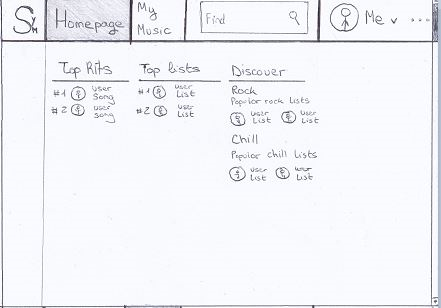 SyM
Homepage
My
Music
Find
Me
Top Hits
#1 User
Song
#2 User
Song
Top Lists
#1 User
List
#2 User
List
Discover
Rock
Popular rock lists
User
List
User
List
Chill
Popular chill Lists
User
List
User
List